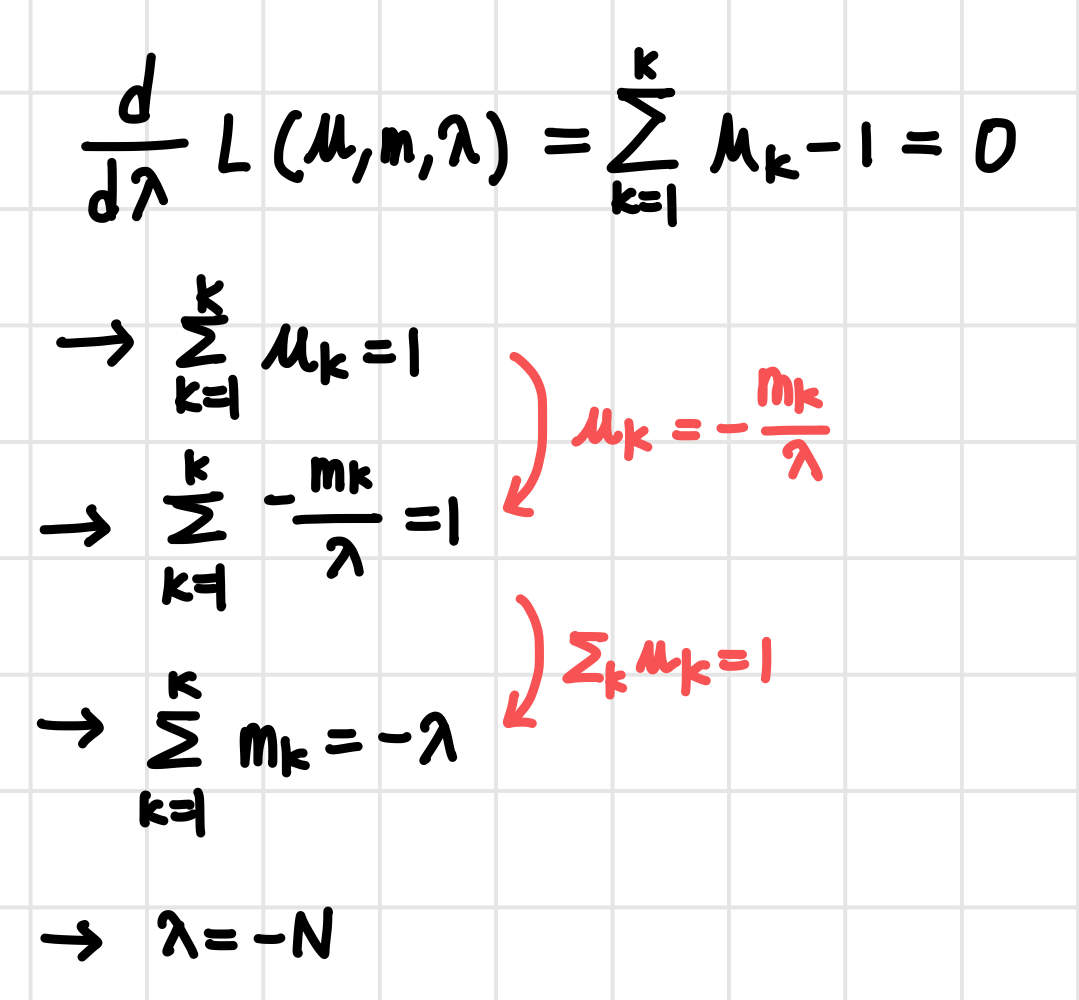 d/dλ L(μ,m,λ) = ∑_{k=1}^{K} μ_k - 1 = 0
→ ∑_{k=1}^{K} μ_k = 1
μ_k = - m_k/λ
→ ∑_{k=1}^{K} - m_k/λ = 1
∑_k μ_k = 1
→ ∑_{k=1}^{K} m_k = -λ
→ λ = -N